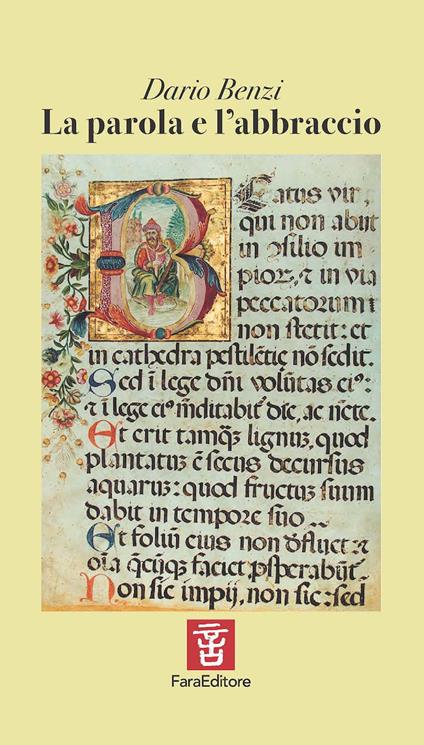 Dario Benzi
La parola e l'abbraccio
Beatus vir,
qui non abiit
in ↄsilio im
pioꝝ, ⁊ in via
peccatorum
non stetit: et
in cathedra pestilētie nō sedit.
Sed ī lege dn̄i volūtas ei⁹:
⁊ ī lege ei⁹ mᷣditabit᷑ die, ac nc̄te.
Et erit tamqꝫ lignuꝫ, quod
plantatuꝫ ē secus decursus
aquaruꝫ: quod fructuꝫ suum
dabit in tempore suo..
Et foliū eius non dꝰfluet: ⁊
oīa q̄cūqꝫ faciet, ꝓsperabūt᷑.
Non sic impij, non sic: sed
FaraEditore